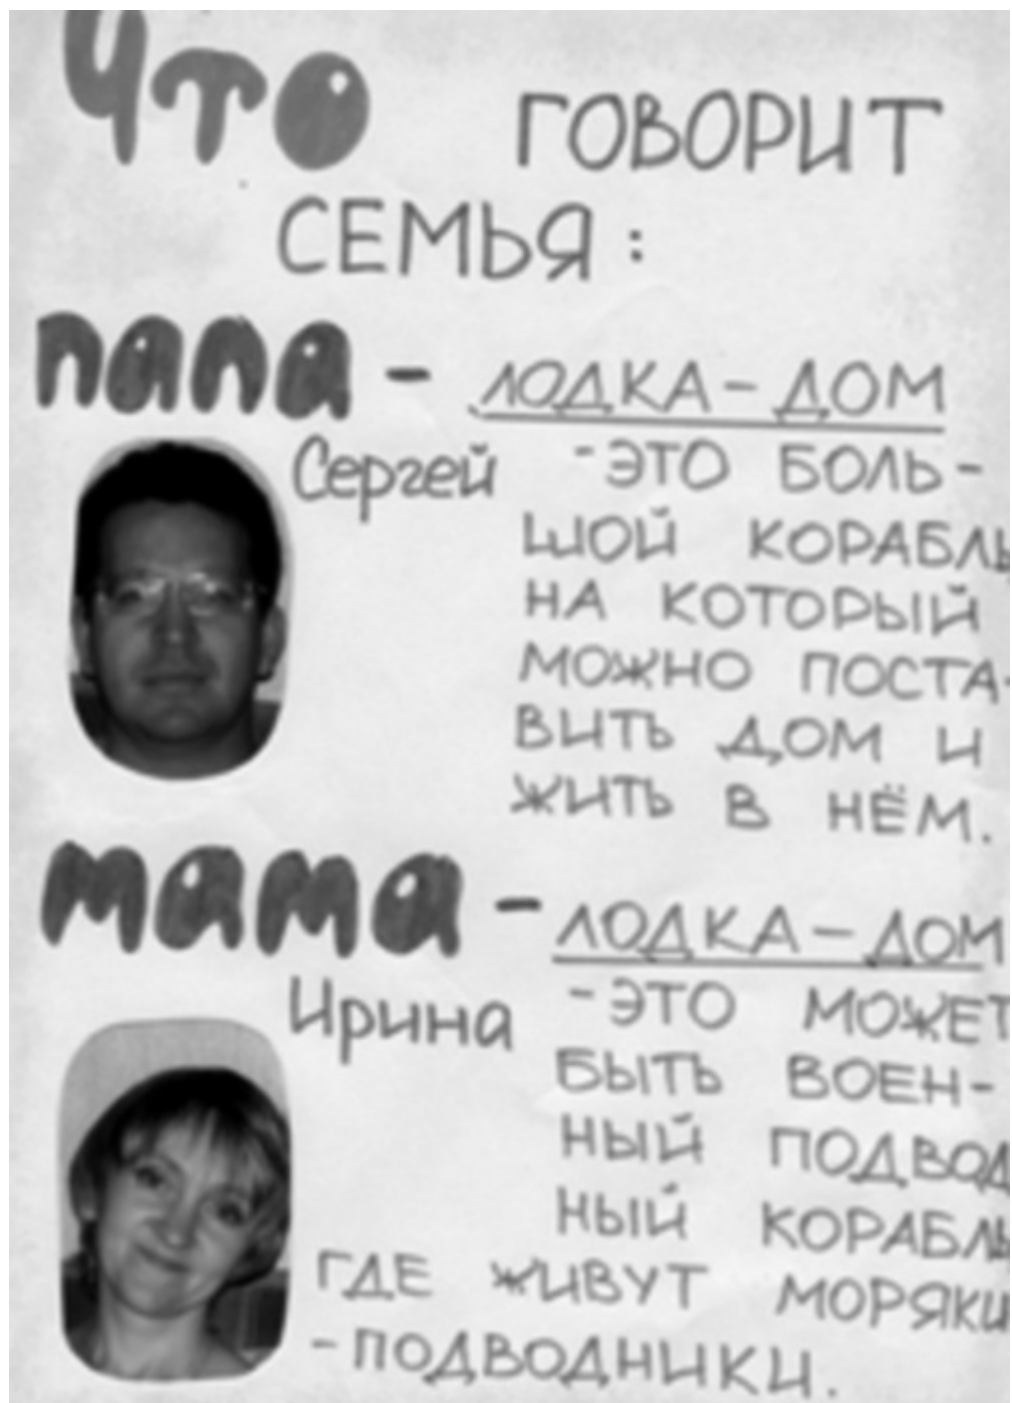 Что ГОВОРИТ
СЕМЬЯ:
папа - ЛОДКА-ДОМ
Сергей -ЭТО БОЛЬ-
ШОЙ КОРАБЛЬ
НА КОТОРЫЙ
МОЖНО ПОСТА-
ВИТЬ ДОМ И
ЖИТЬ В НЁМ.
мама - ЛОДКА-ДОМ
Ирина -ЭТО МОЖЕТ
БЫТЬ ВОЕН-
НЫЙ ПОДВОД
НЫЙ КОРАБЛЬ
ГДЕ ЖИВУТ МОРЯКИ
-ПОДВОДНИКИ.